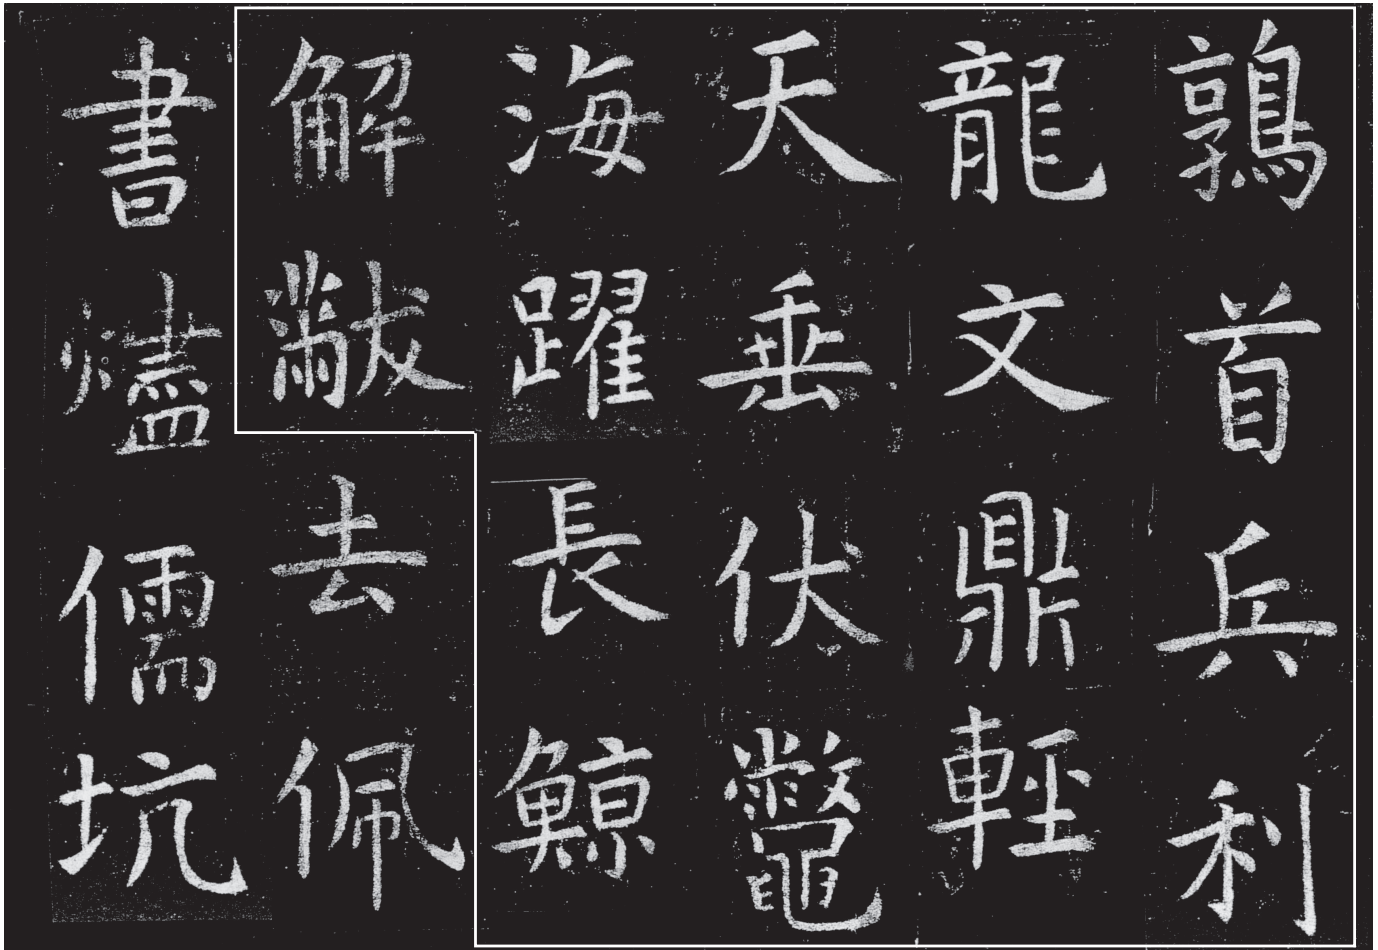 鶉首兵利
龍文鼎輕
天垂伏鼈
海躍長鯨
解黻去佩
書燼儒坑